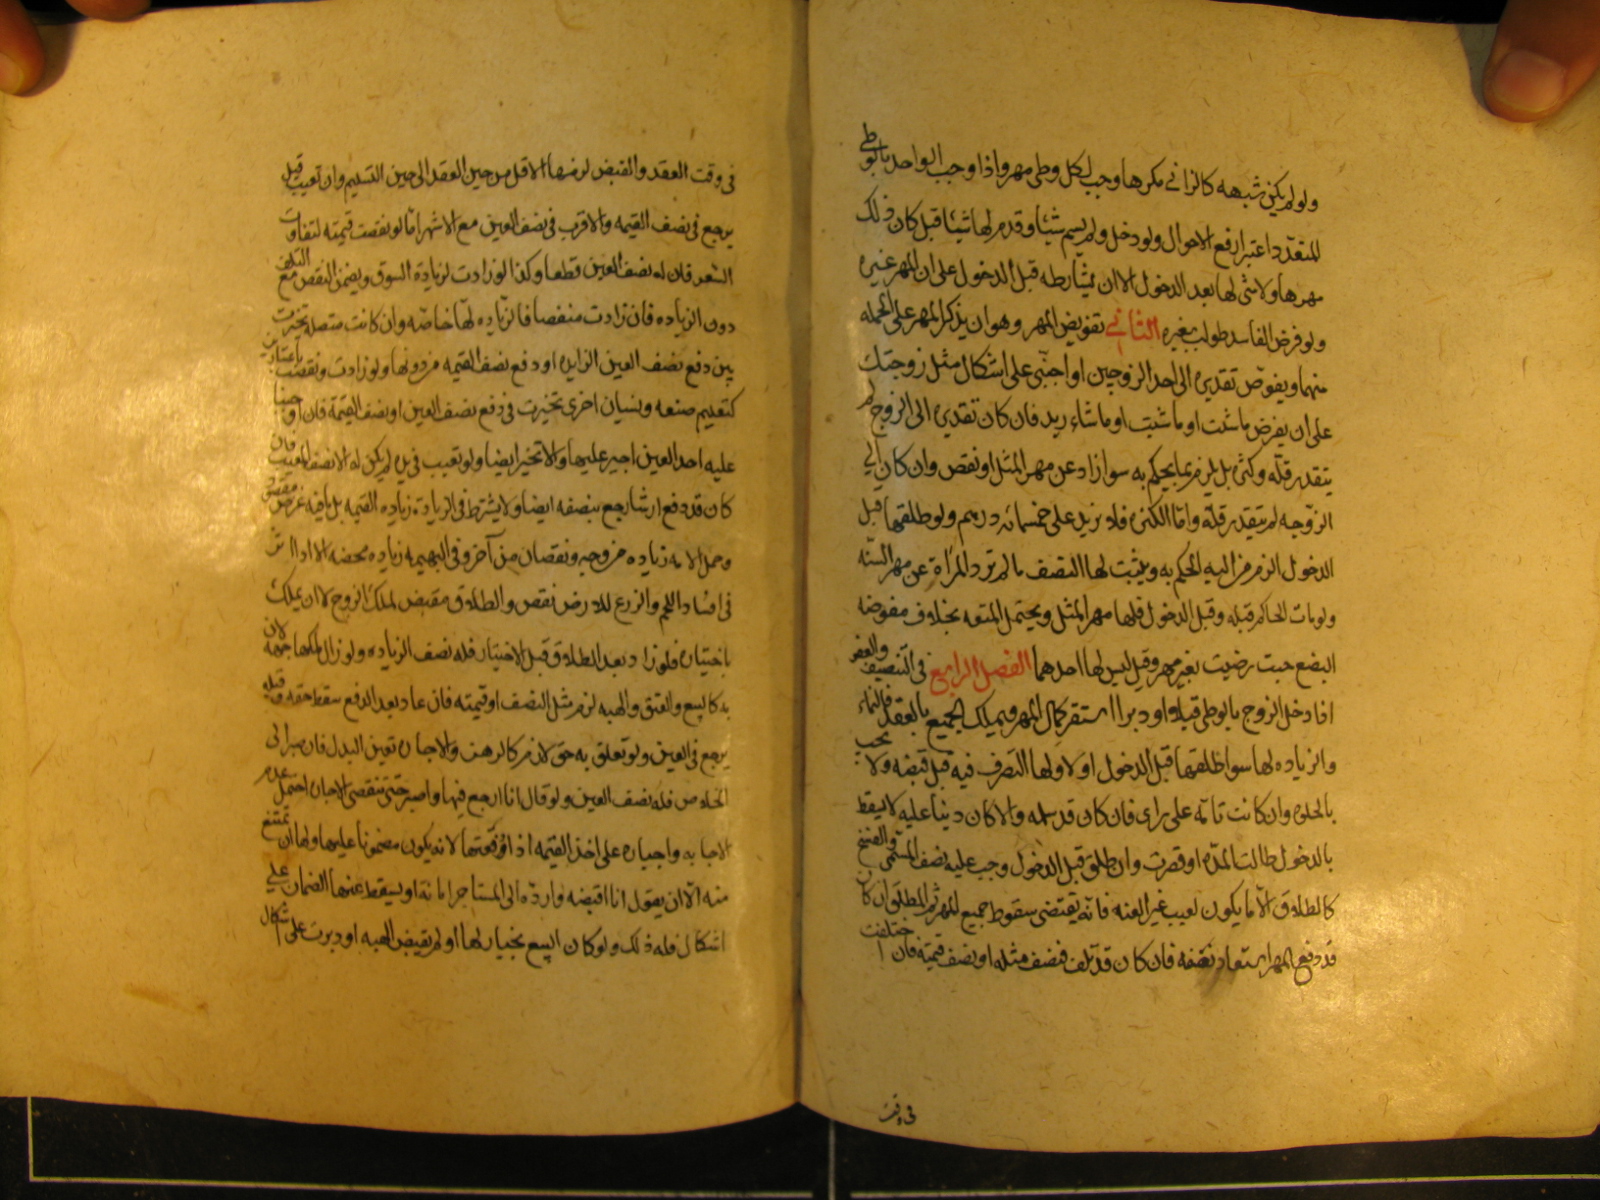 ولو لم يكن شبهه كالزاني مكرها وجب لكل وطى مهر واذا وجب الواحد بالوطى
المتعدد اعتبر ارفع الاحوال ولو دخل ولم يسم شيئا وقدم لها شيئا قبل كان ذلك
مهرها ولا شى لها بعد الدخول الا ان يشارطه قبل الدخول على ان المهر غيره
ولو فرض الفاسد طولب بغيره الثاني تفويض المهر وهو ان يذكر المهر على الجمله
منهما ويفوض تقديره الى احد الزوجين او اجنبى على اشكال مثل زوجتك
على ان يفرض ما شئت او ما شيت او ما شاء زيد فان كان تقديره الى الزوج لم
يتقدر قله وكثره بل يلزم بما يحكم به سوا زاد عن مهر المثل او نقص وان كان الي
الزوجه لم يتقدر قله واما الكثره فلا يزيد على خمسمائه درهم ولو طلقها قبل
الدخول الزم من اليه الحكم به ويثبت لها النصف ما لم تزد المراة عن مهر السنه
ولو مات الحاكم قبله وقبل الدخول فلها مهر المثل ويحتمل المتعه بخلاف مفوضه
البضع حيث رضيت بغير مهر وقيل ليس لها احدهما الفصل الرابع فى التنصيف والعفو
اذا دخل الزوج بالوطى قبلا او دبرا استقر كمال المهر ويملك الجميع بالعقد فالنماء
والزياده لها سوا طلقها قبل الدخول او لا ولها التصرف فيه قبل قبضه ولا يجب
بالخلوه وان كانت تامه على راى فان كان قد سلمه والا كان دينا عليه لا يسقط
بالدخول طالت المده او قصرت وان طلق قبل الدخول وجب عليه نصف المسمى والفسخ
كالطلاق الا ما يكون لعيب غير العنه فانه يقتضى سقوط جميع المهر ثم المطلق ان كان
قد دفع المهر استعاد نصفه فان كان قد تلف فنصف مثله او نصف قيمته فان اختلفت
فى وقت
فى وقت العقد والقبض لزمها الاقل من حين العقد الى حين التسليم وان تعيب قيل
يرجع فى نصف القيمه والاقرب فى نصف العين مع الارش اما لو نقصت قيمته لتفاوت
السعر فان له نصف العين قطعا وكذا لو زادت لزيادة السوق ويضمن النقص مع التلف
دون الزياده فان زادت منفصلا فالزياده لها خاصه وان كانت متصله تخيرت
بين دفع نصف العين الزايده او دفع نصف القيمه من دونها ولو زادت ونقصت باعتبارين
كتعليم صنعه ونسيان اخرى تخيرت فى دفع نصف العين او نصف القيمة فان اوجبنا
عليه احد العين اجبر عليها والا تخير ايضا ولو تعيب فى يده لم يكن له الا نصف المعيب فان
كان قد دفع ارشا رجع بنصفه ايضا ولا يشترط فى الزيادة زياده القيمه بل ما فيه غرض مقصود
وحمل الامه زياده من وجه ونقصان من آخر وفى البهيمه زياده محضه الا اذا اثر
فى افساد اللحم والزرع للارض نقص والطلاق مقتض لملك الزوج لا ان يملك
باختياره فلو زاد بعد الطلاق قبل الاختيار فله نصف الزياده ولو زال ملكها جهه لازمه
كالبيع والعتق والهبه لزم مثل النصف او قيمته فان عاد بعد الدفع سقط حقه وقبله
يرجع فى العين ولو تعلق به حق لازم كالرهن والاجاره تعين البدل فان صبر الى
الخلاص فله نصف العين ولو قال انا ارجع فيها واصبر حتى تنقضى الاجاره احتمل عدم
الاجابه واجباره على اخذ القيمه اذا دفعتها لانه يكون مضمونا عليها ولها ان تمتنع
منه الا ان يقول انا اقبضه وارده الى المستاجر امانة او يسقط عنها الضمان على
اشكال فله ذلك ولو كان البيع بخيار لها او لم يقبض الهبه او دبرت على اشكال